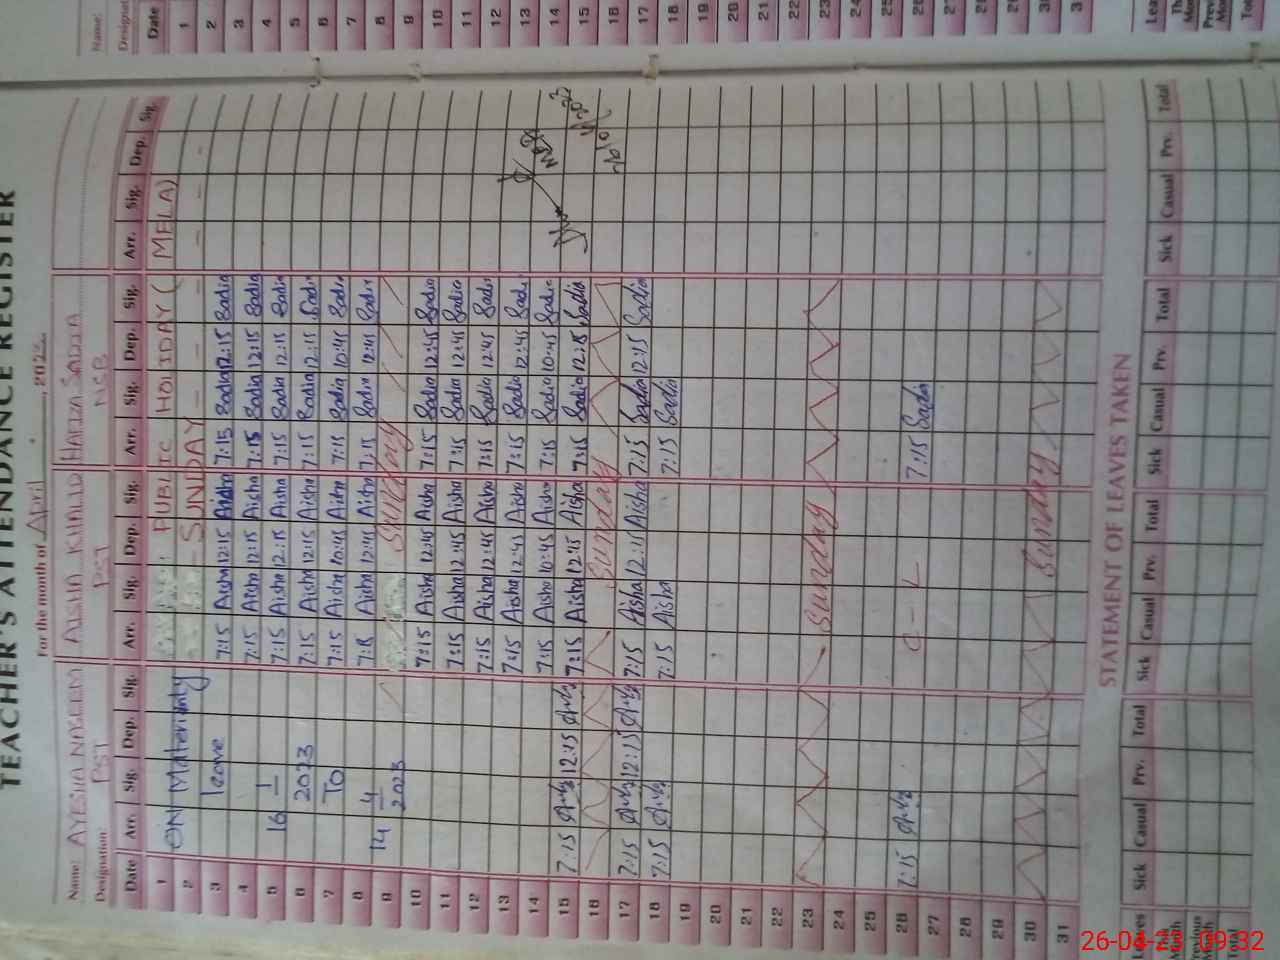 TEACHER'S ATTENDANCE REGISTER
For the month of April, 202
Name: AYESHA NASEEM AISHA KHALID HAFIZA SADIA
Designation: PST PST NSB
Date Arr. Sig. Dep. Sig. Arr. Sig. Dep. Sig. Arr. Sig. Dep. Sig. Arr. Sig. Dep. Sig.
1 PUBLIC HOLIDAY ( MELA)
2 ON Materinity - SUNDAY - - - - - -
3 leave 7:15 Aisha 12:15 Aisha 7:15 Sadia 12:15 Sadia
4 7:15 Aisha 12:15 Aisha 7:15 Sadia 12:15 Sadia
5 16 1 7:15 Aisha 12:15 Aisha 7:15 Sadia 12:15 Sadia
6 2023 7:15 Aisha 12:15 Aisha 7:15 Sadia 12:15 Sadia
7 To 7:15 Aisha 10:45 Aisha 7:15 Sadia 10:45 Sadia
8 7:15 Aisha 12:45 Aisha 7:15 Sadia 12:45 Sadia
9 14 4 2023 Sunday
10 7:15 Aisha 12:45 Aisha 7:15 Sadia 12:45 Sadia
11 7:15 Aisha 12:45 Aisha 7:15 Sadia 12:45 Sadia
12 7:15 Aisha 12:45 Aisha 7:15 Sadia 12:45 Sadia
13 7:15 Aisha 12:45 Aisha 7:15 Sadia 12:45 Sadia
14 7:15 Aisha 10:45 Aisha 7:15 Sadia 10:45 Sadia
15 7:15 12:15 7:15 Aisha 12:15 Aisha 7:15 Sadia 12:15 Sadia
16 Sunday
17 7:15 12:15 7:15 Aisha 12:15 Aisha 7:15 Sadia 12:15 Sadia
18 7:15 7:15 Aisha 7:15 Sadia
19
20
21
22
23 Sunday
24
25
26 7:15 C - L 7:15 Sadia
27
28
29
30 Sunday
31
STATEMENT OF LEAVES TAKEN
Leaves Sick Casual Prv. Total Sick Casual Prv. Total Sick Casual Prv. Total Sick Casual Prv. Total
This Month
Previous Month
Total
Name:
Designat
Date
1
2
3
4
5
6
7
8
9
10
11
12
13
14
15
16
17
18
19
20
21
22
23
24
25
26
27
28
29
30
3
Leav
Th
Mon
Prev
Mo
Tot
26-04-23 09:32